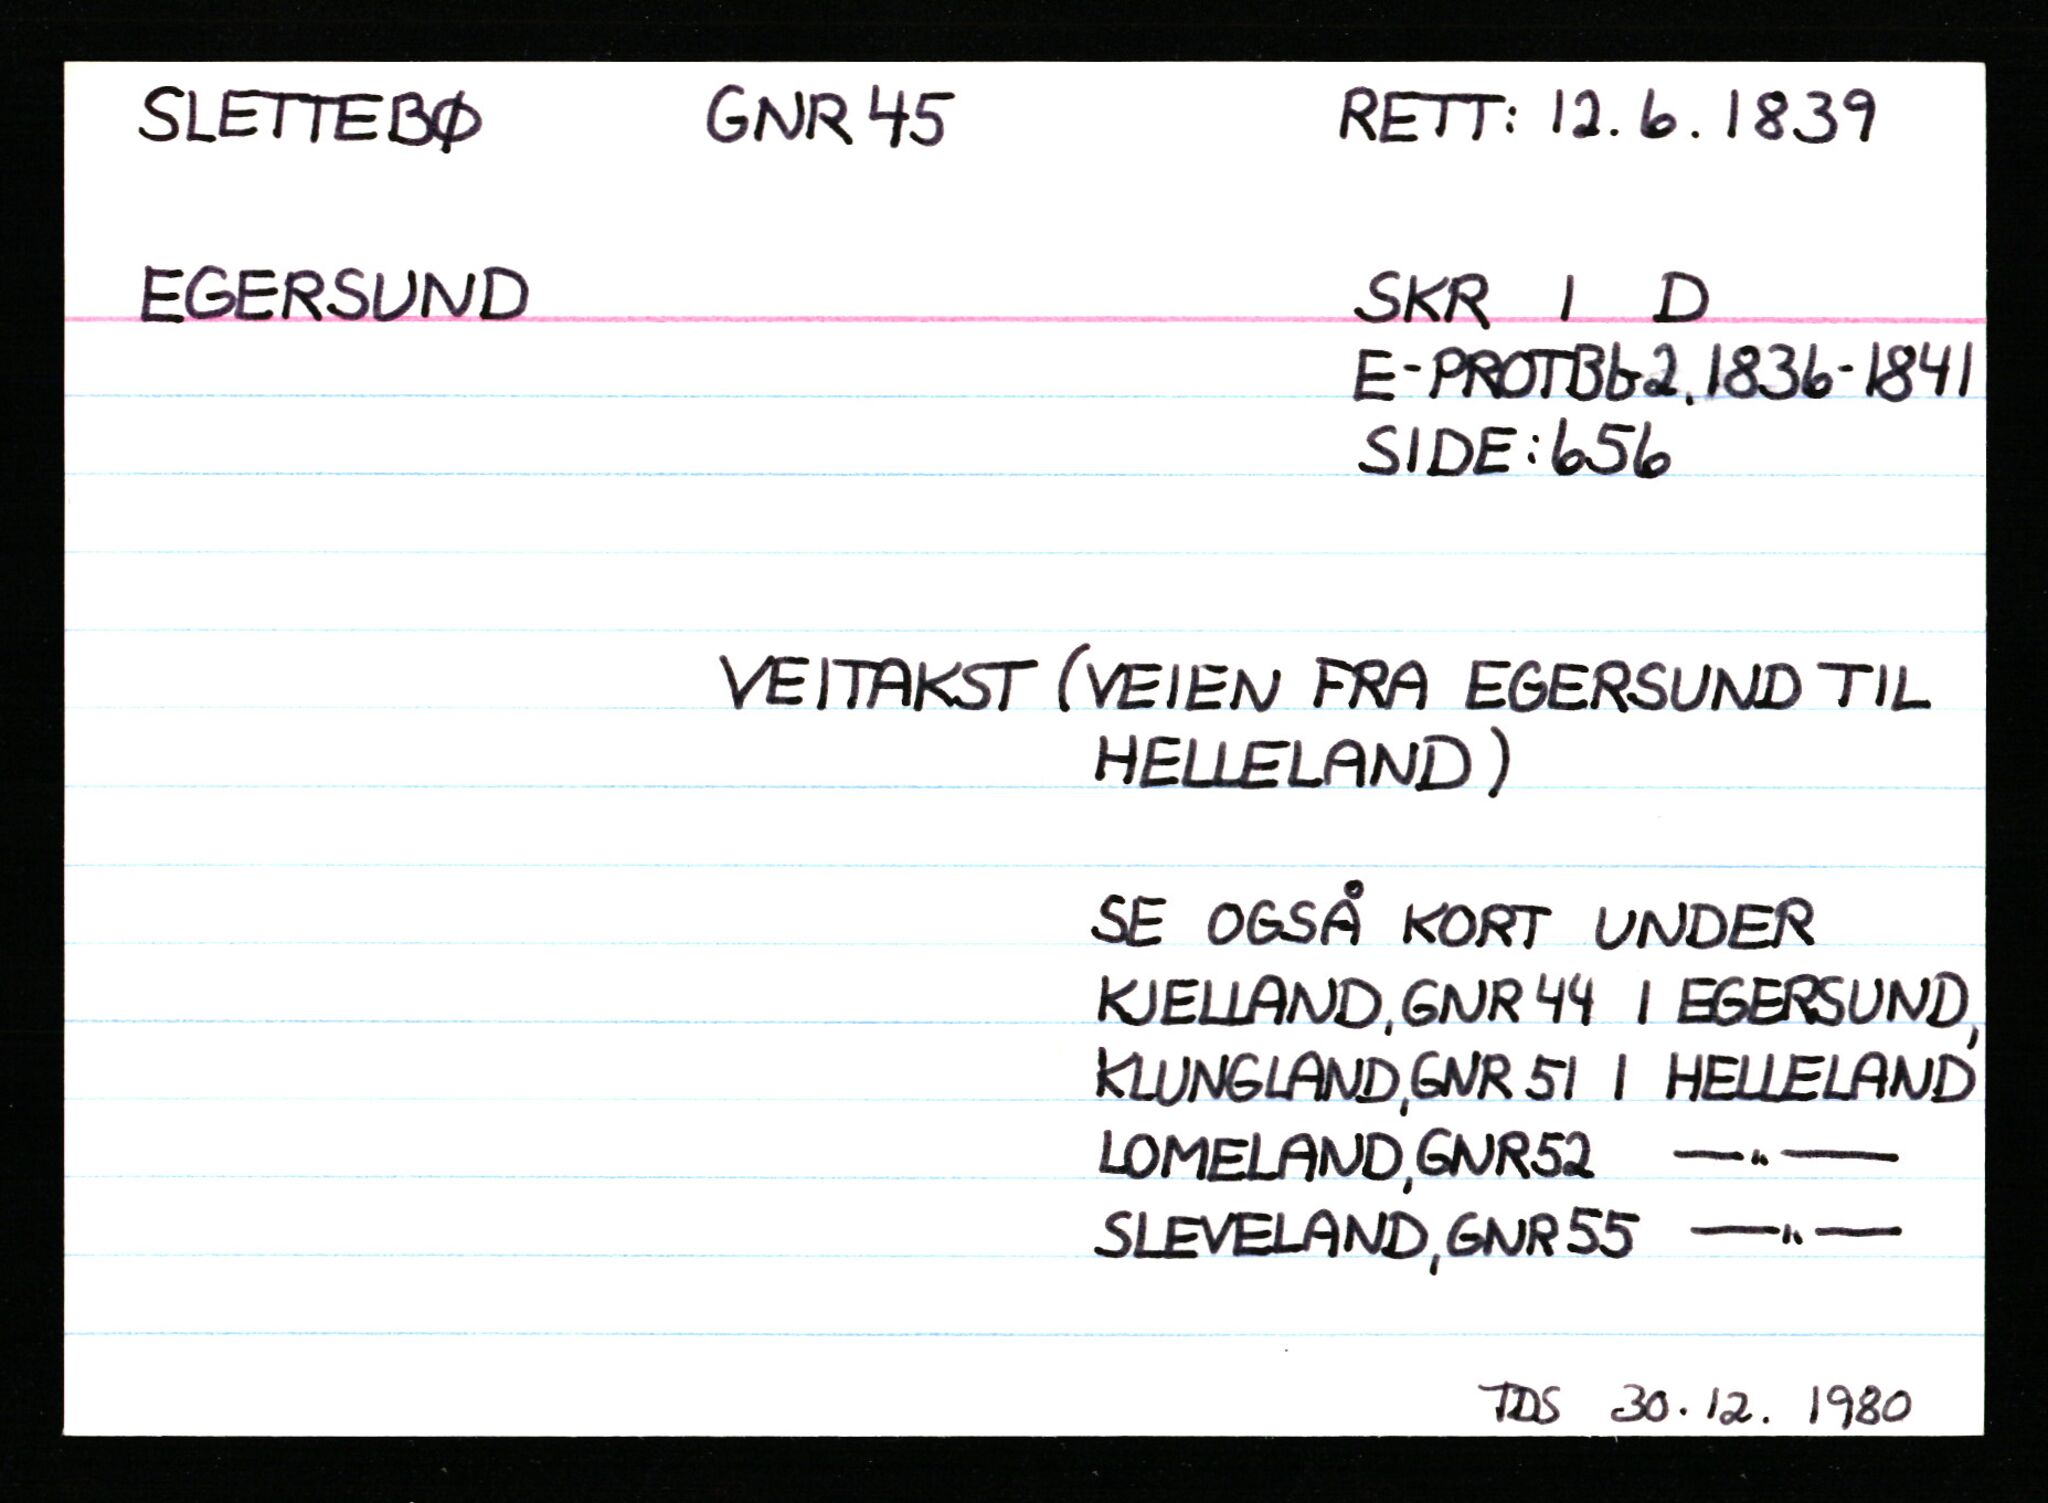 SLETTEBØ GNR 45 RETT: 12.6.1839
EGERSUND SKR I D
E-PROTBb2.1836-1841
SIDE:656
VEITAKST (VEIEN FRA EGERSUND TIL
HELLELAND)
SE OGSÅ KORT UNDER
KJELLAND, GNR 44 I EGERSUND,
KLUNGLAND, GNR 51 I HELLELAND
LOMELAND, GNR 52 —"—
SLEVELAND, GNR 55 —"—
TDS 30.12.1980